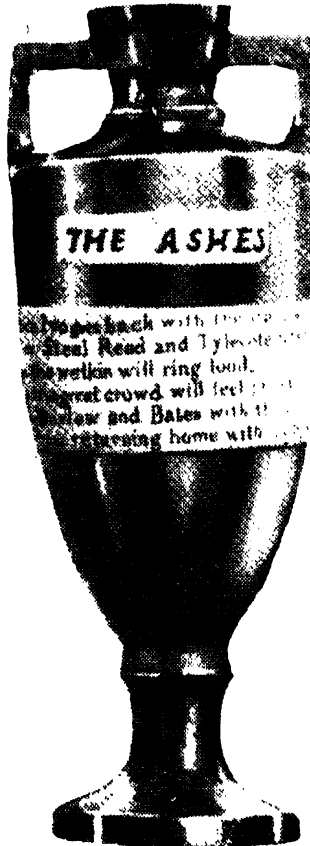 THE ASHES
back with the
Steal Read and Tylecote
welkin will ring loud,
great crowd will feel
and Bates with the
returning home with